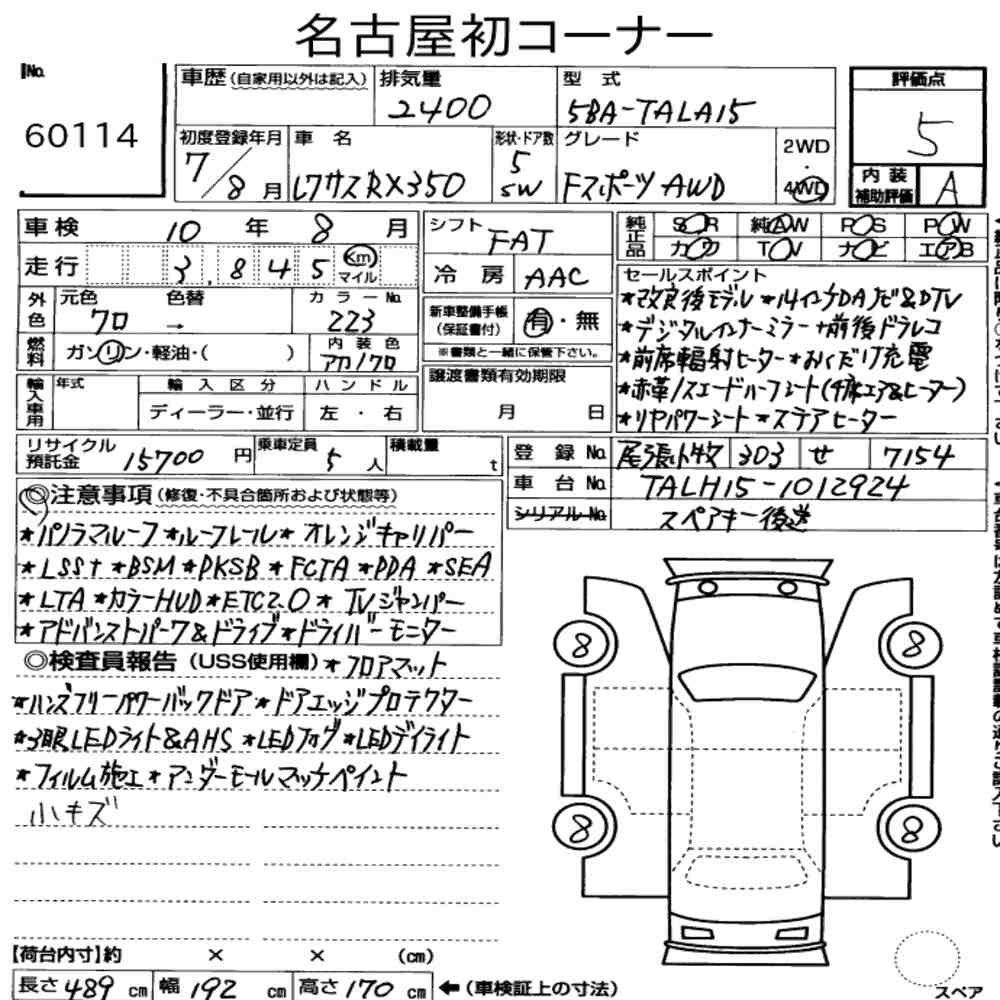 名古屋初コーナー
No.
60114
車歴(自家用以外は記入)
排気量
2400
型 式
5BA-TALA15
評価点
5
初度登録年月
7/8月
車 名
レクサスRX350
形状・ドア数
5
SW
グレード
Fスポーツ AWD
2WD
・
4WD
内 装
補助評価
A
車検 10 年 8 月
走行 3,845 Km マイル
シフト
FAT
冷 房 AAC
純正品
S○R 純AW P○S P○W
カワ TV ナビ エアB
外色
元色 色替 カラーNo.
クロ → 223
燃料
ガソリン・軽油・( )
内 装 色
アカ/クロ
新車整備手帳
(保証書付)
有・無
※書類と一緒に保管下さい。
セールスポイント
★改良後モデル ★14インチDAナビ&DTV
★デジタルインナーミラー+前後ドラレコ
★前席輻射ヒーター★おくだけ充電
★赤革/スエードハーフシート(4席エア&ヒーター)
★リヤパワーシート★ステアヒーター
輸入車用
年式
輸入区分
ハンドル
ディーラー・並行
左 ・ 右
譲渡書類有効期限
月 日
リサイクル
預託金 15700 円
乗車定員
5 人
積載量
t
登 録 No. 尾張小牧 303 せ 7154
車 台 No. TALH15-1012924
シリアルNo. スペアキー後送
注意事項(修復・不具合箇所および状態等)
★パノラマルーフ★ルーフレール★オレンジキャリパー
★LSS+ ★BSM★PKSB★FCTA★PDA ★SEA
★LTA ★カラーHUD★ETC2.0★ TVジャンパー
★アドバンストパーク&ドライブ★ドライバーモニター
◎検査員報告(USS使用欄)★フロアマット
★ハンズフリーパワーバックドア★ドアエッジプロテクター
★3眼LEDライト&AHS ★LEDフォグ★LEDデイライト
★フィルム施工★アンダーモールマッチペイント
小キズ
8
8
8
8
【荷台内寸】約 × × (cm)
長さ489cm 幅 192 cm 高さ170cm ←(車検証上の寸法)
スペア